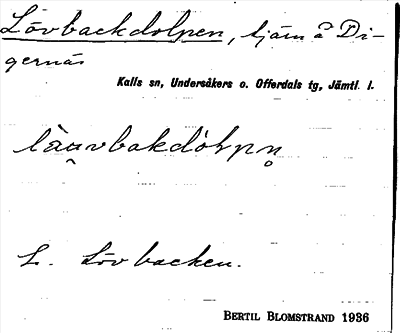 Lövbackdolpen, tjärn å Di-
gernäs
Kalls sn, Undersåkers o. Offerdals tg, Jämtl. l.
làu̯vbakdòḷpn̥
L. Lövbacken.
BERTIL BLOMSTRAND 1936